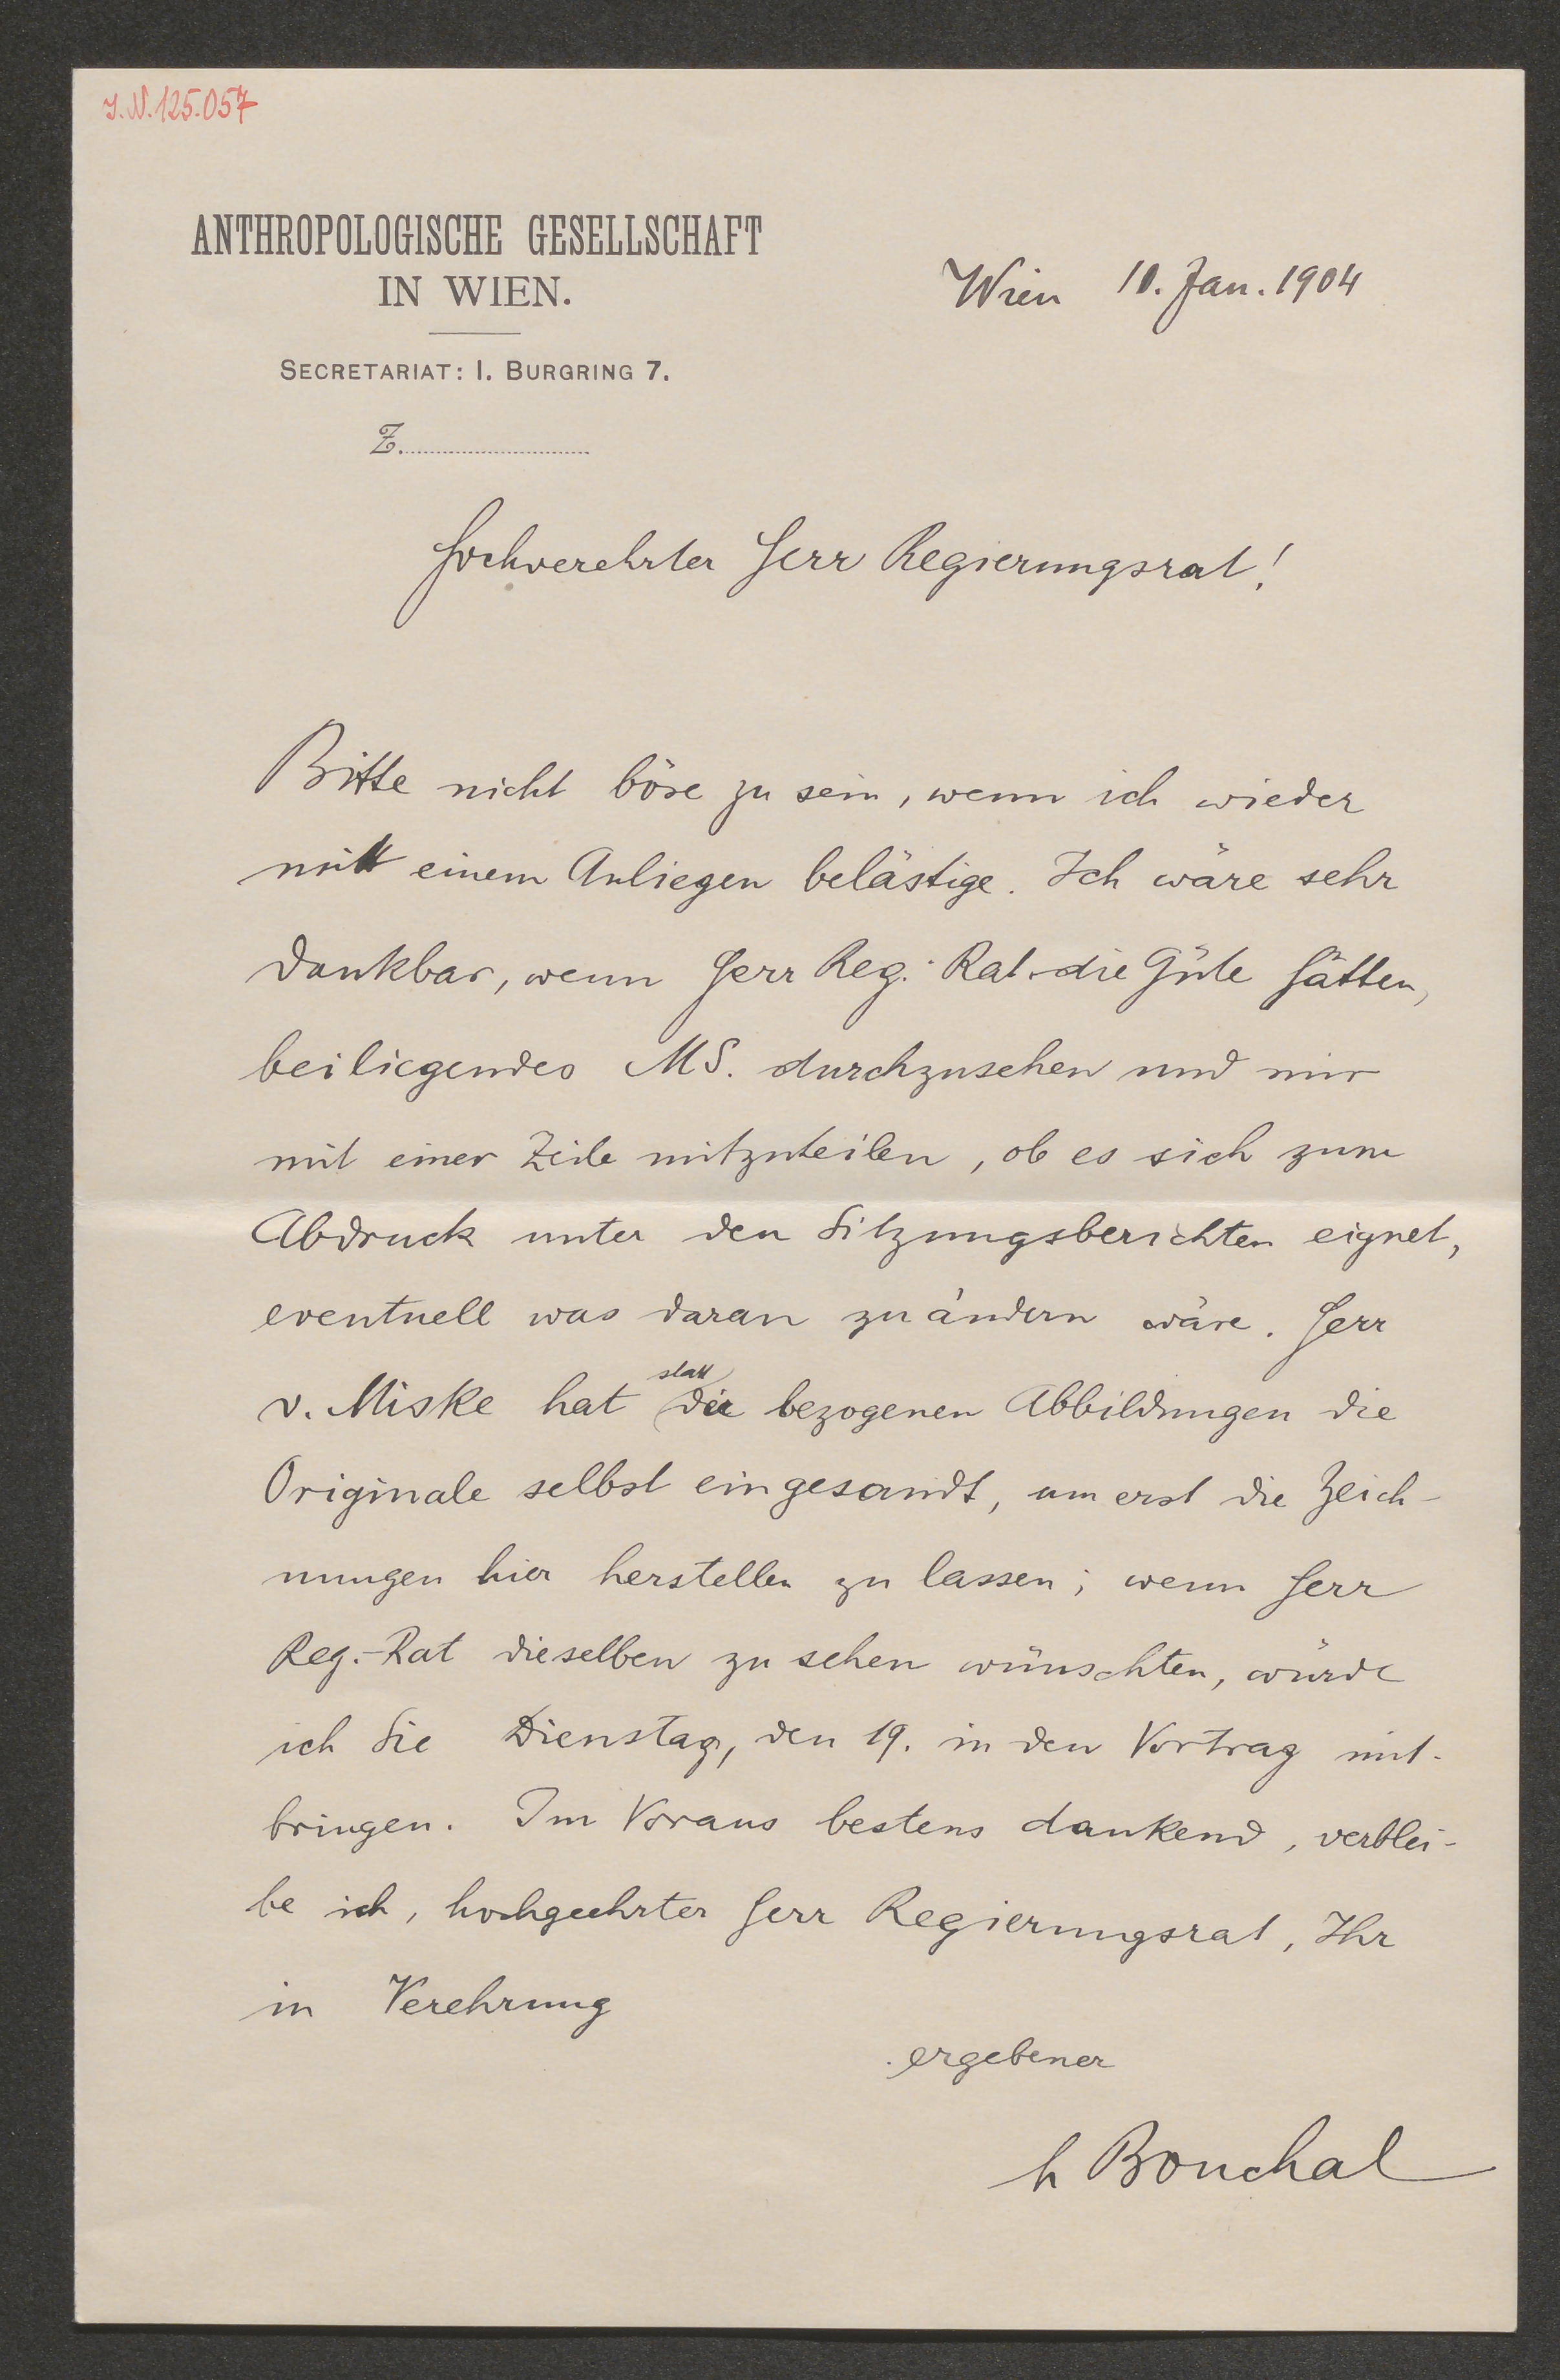 J.N.125.057
ANTHROPOLOGISCHE GESELLSCHAFT
IN WIEN.
Wien 10. Jan. 1904
SECRETARIAT: I. BURGRING 7.
Z.
Hochverehrter Herr Regierungsrat!
Bitte nicht böse zu sein, wenn ich wieder
mit einem Anliegen belästige. Ich wäre sehr
dankbar, wenn Herr Reg. Rat die Güte hätten,
beiliegendes MS. durchzusehen und mir
mit einer Zeile mitzuteilen, ob es sich zum
Abdruck unter den Sitzungsberichten eignet,
eventuell was daran zu ändern wäre. Herr
v. Miske hat statt der bezogenen Abbildungen die
Originale selbst eingesandt, um erst die Zeich-
nungen hier herstellen zu lassen; wenn Herr
Reg.-Rat dieselben zu sehen wünschten, würde
ich sie Dienstag, den 19. in den Vortrag mit-
bringen. Im Voraus bestens dankend, verblei-
be ich, hochgeehrter Herr Regierungsrat, Ihr
in Verehrung
ergebener
Bouchal